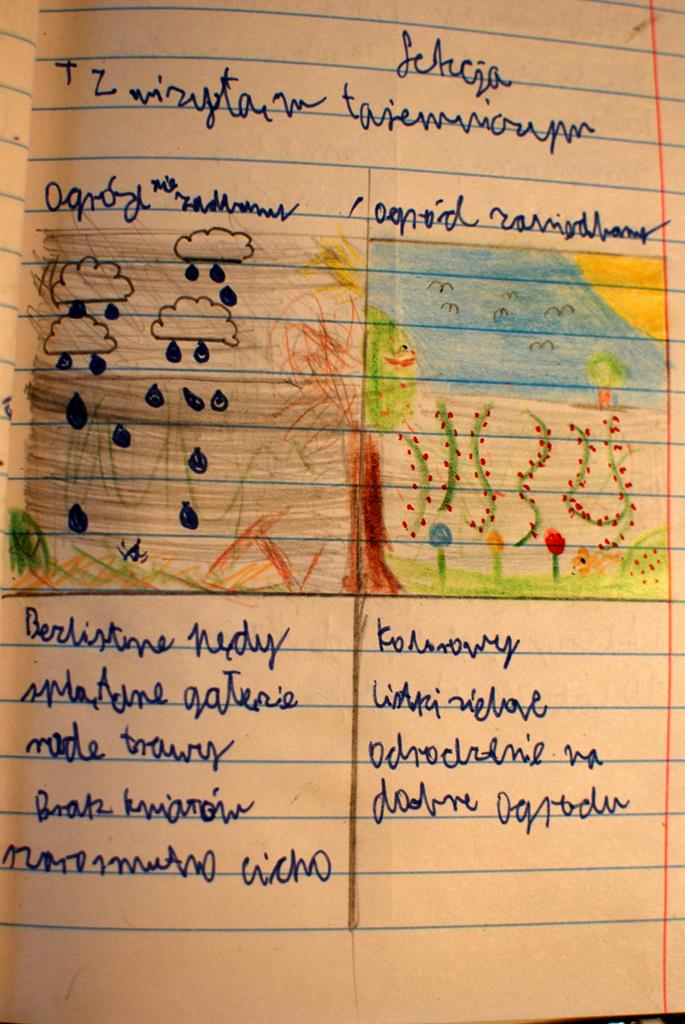 Lekcja
T Z wizytą w tajemniczym
Ogród nie zadbany / ogród zaniedbany
Bezlistne pędy
splątane gałęzie
rude trawy
Brak kwiatów
szaro smutno cicho
Kolorowy
listki zielone
odrodzenie na
dobre ogrodu